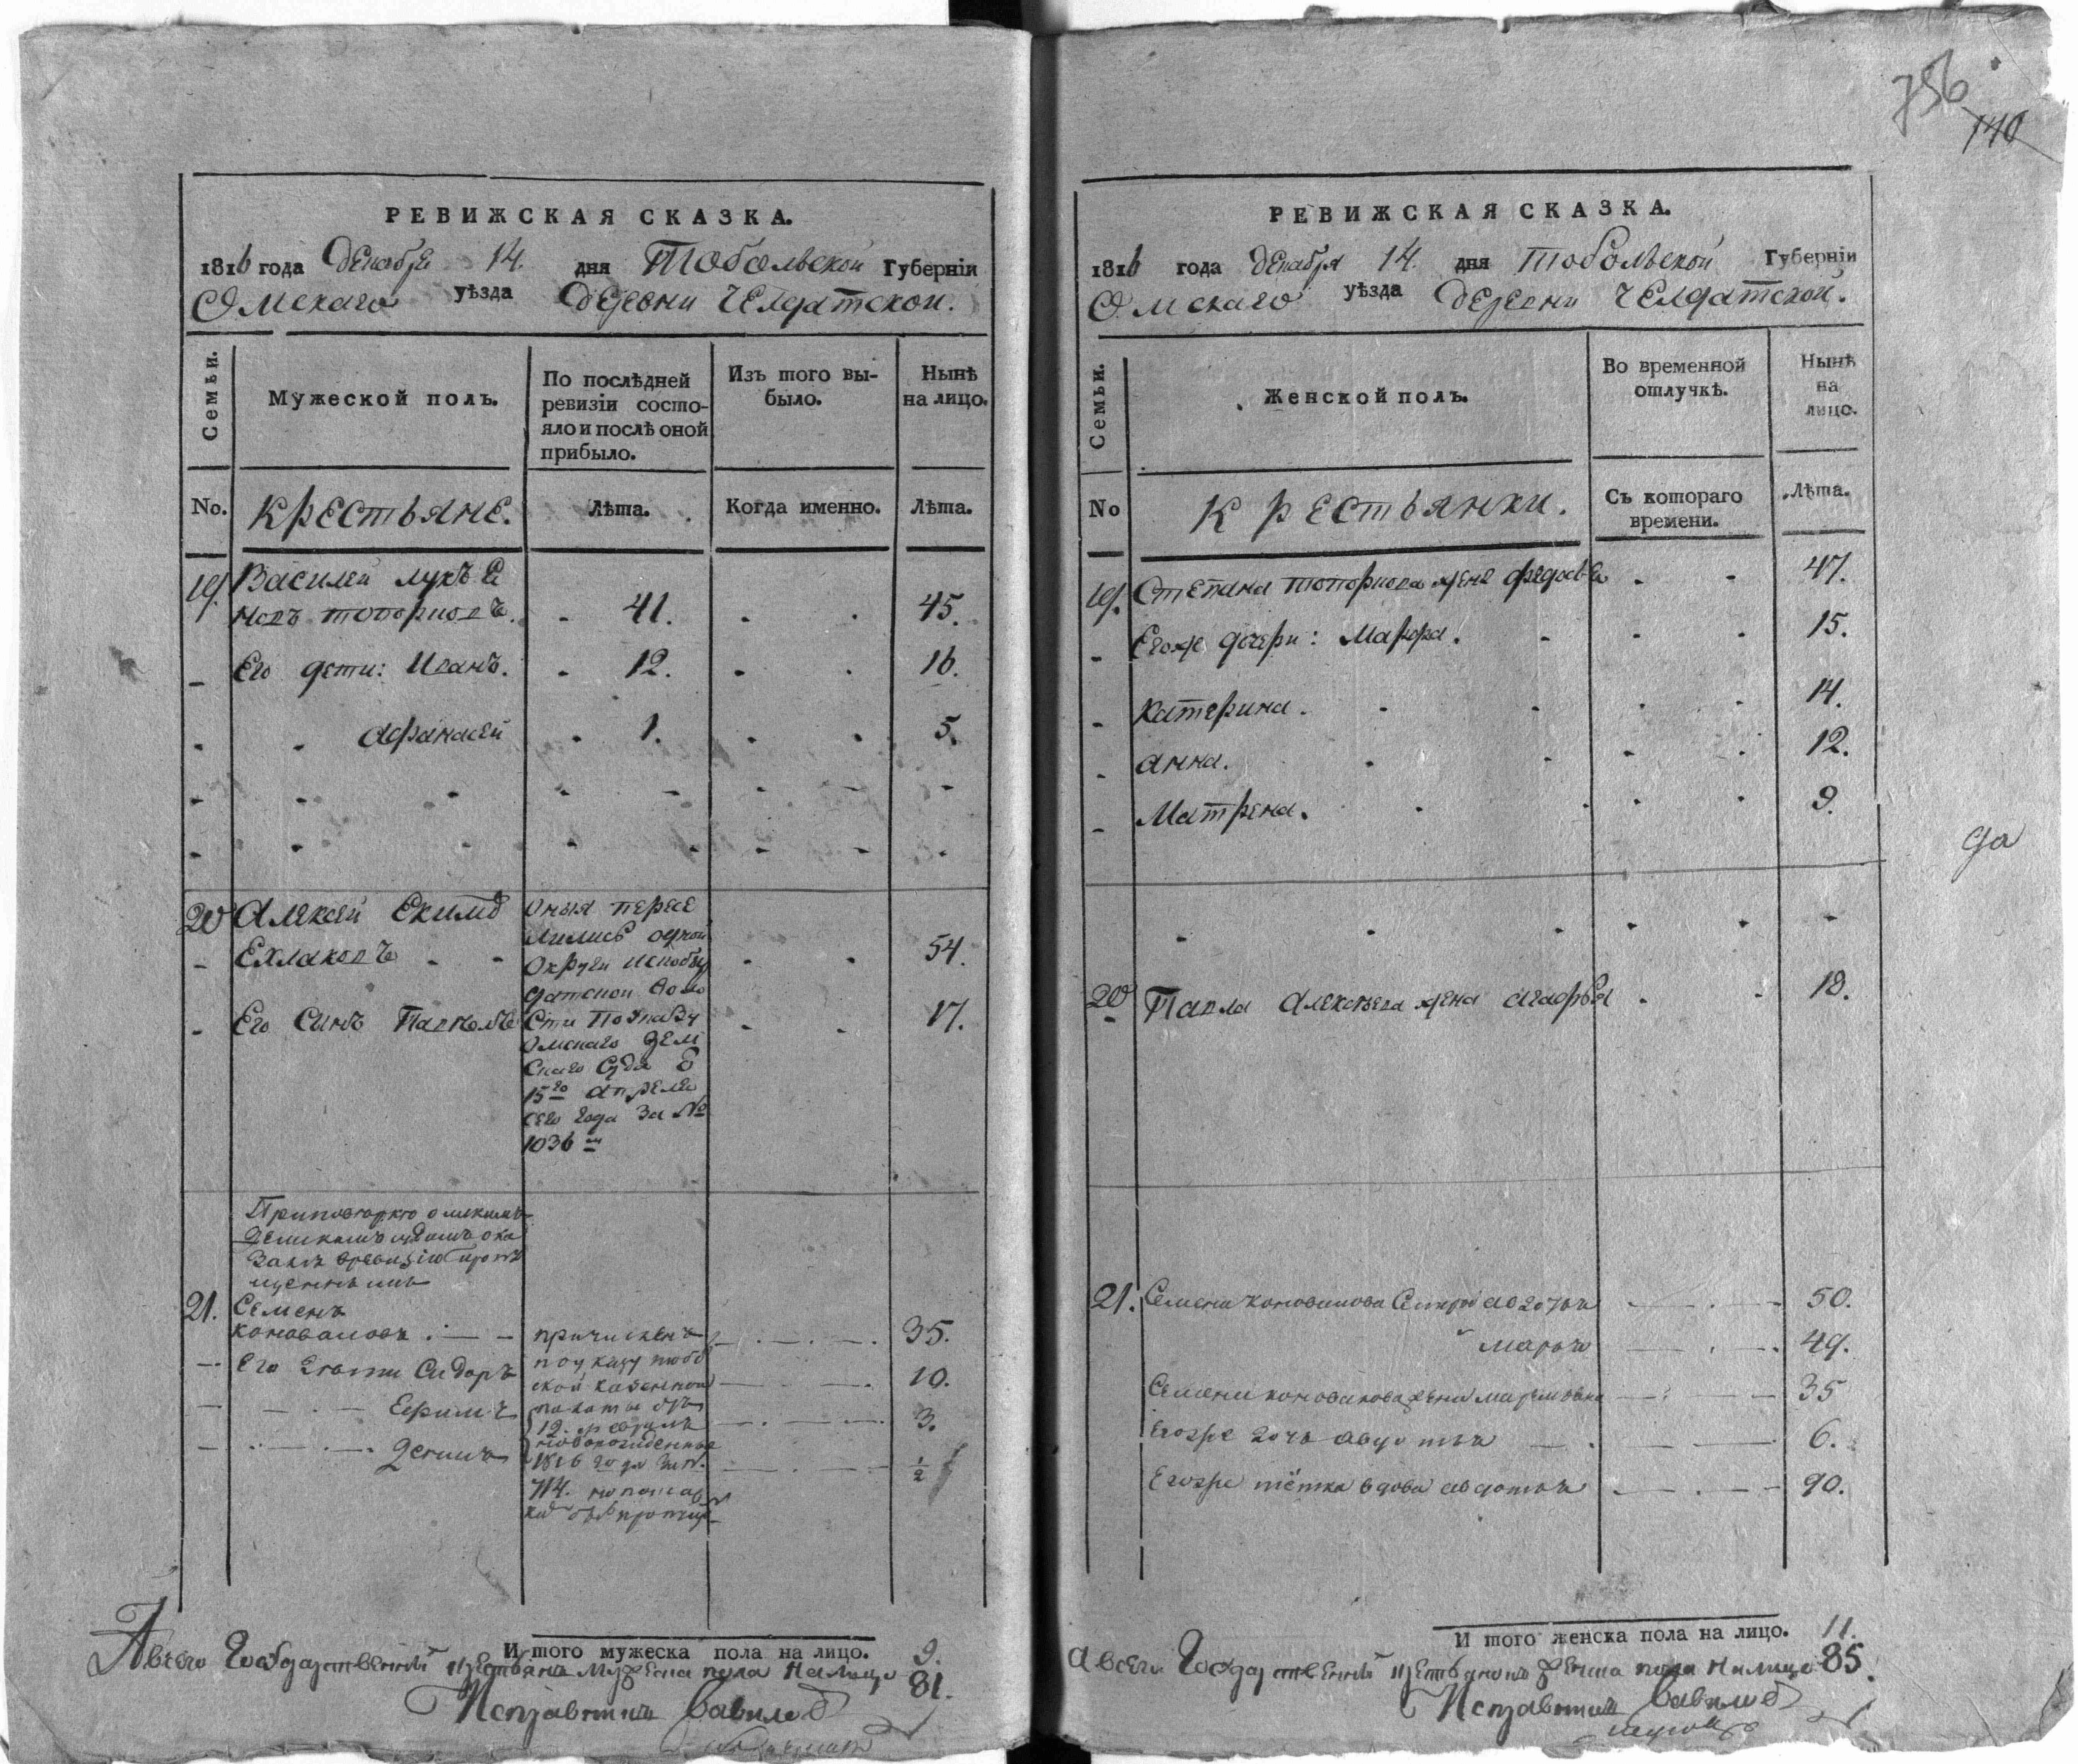 РЕВИЖСКАЯ СКАЗКА.
1816 года Декабря 14. дня Тобольской Губерніи
Омскаго уѣзда Деревни Челдатской.
Семьи.
Мужеской полъ.
По послѣдней ревизіи состо-
яло и послѣ оной
прибыло.
Изъ того вы-
было.
Нынѣ
на лицо.
No.
Крестьяне.
Лѣта.
Когда именно.
Лѣта.
19. Василей Лукъя
новъ Топорковъ. 41. 45.
Его дети: Иванъ. 12. 16.
Афанасей 1. 5.
20 Алексей Екимов
Ехлаковъ 54.
Его Синъ Павелъ 17.
Оныя пересе
лились
Округи
датской воло
сти По Указу
Омскаго Зем
скаго Суда
15го Апреля
сего года за №
1036м
21. Семенъ
Коноваловъ 35.
Его дети Сидоръ 10.
Ефимъ 3.
Денисъ 1/2
причисленъ
по указу тобо
ской казенной
палаты отъ
12. февраля
1816 года за №.
714.
И того мужеска пола на лицо. 9.
Авсего Государственныхъ крестьянъ мужеска пола налицо 81.
Исправникъ
756
140
РЕВИЖСКАЯ СКАЗКА.
1816 года Декабря 14. дня Тобольской Губерніи
Омскаго уѣзда Деревни Челдатской.
Семьи.
Женской полъ.
Во временной
отлучкѣ.
Нынѣ
на
лицо.
No
Крестьянки.
Съ котораго
времени.
Лѣта.
19. Степана Топоркова жена Федосья 47.
Егоже дочери: Мавра. 15.
Катерина. 14.
Анна. 12.
Матрена. 9.
да
20 Павла Алексеева жена Агафья 18.
21. Семена Коновалова 50.
Марья 49.
Семена Коновалова жена 35
Егоже дочь Авдотья 6.
Егоже тётка вдова Авдотья 90.
И того женска пола на лицо. 11.
Авсего Государственныхъ крестьянокъ женска пола налицо 85.
Исправникъ